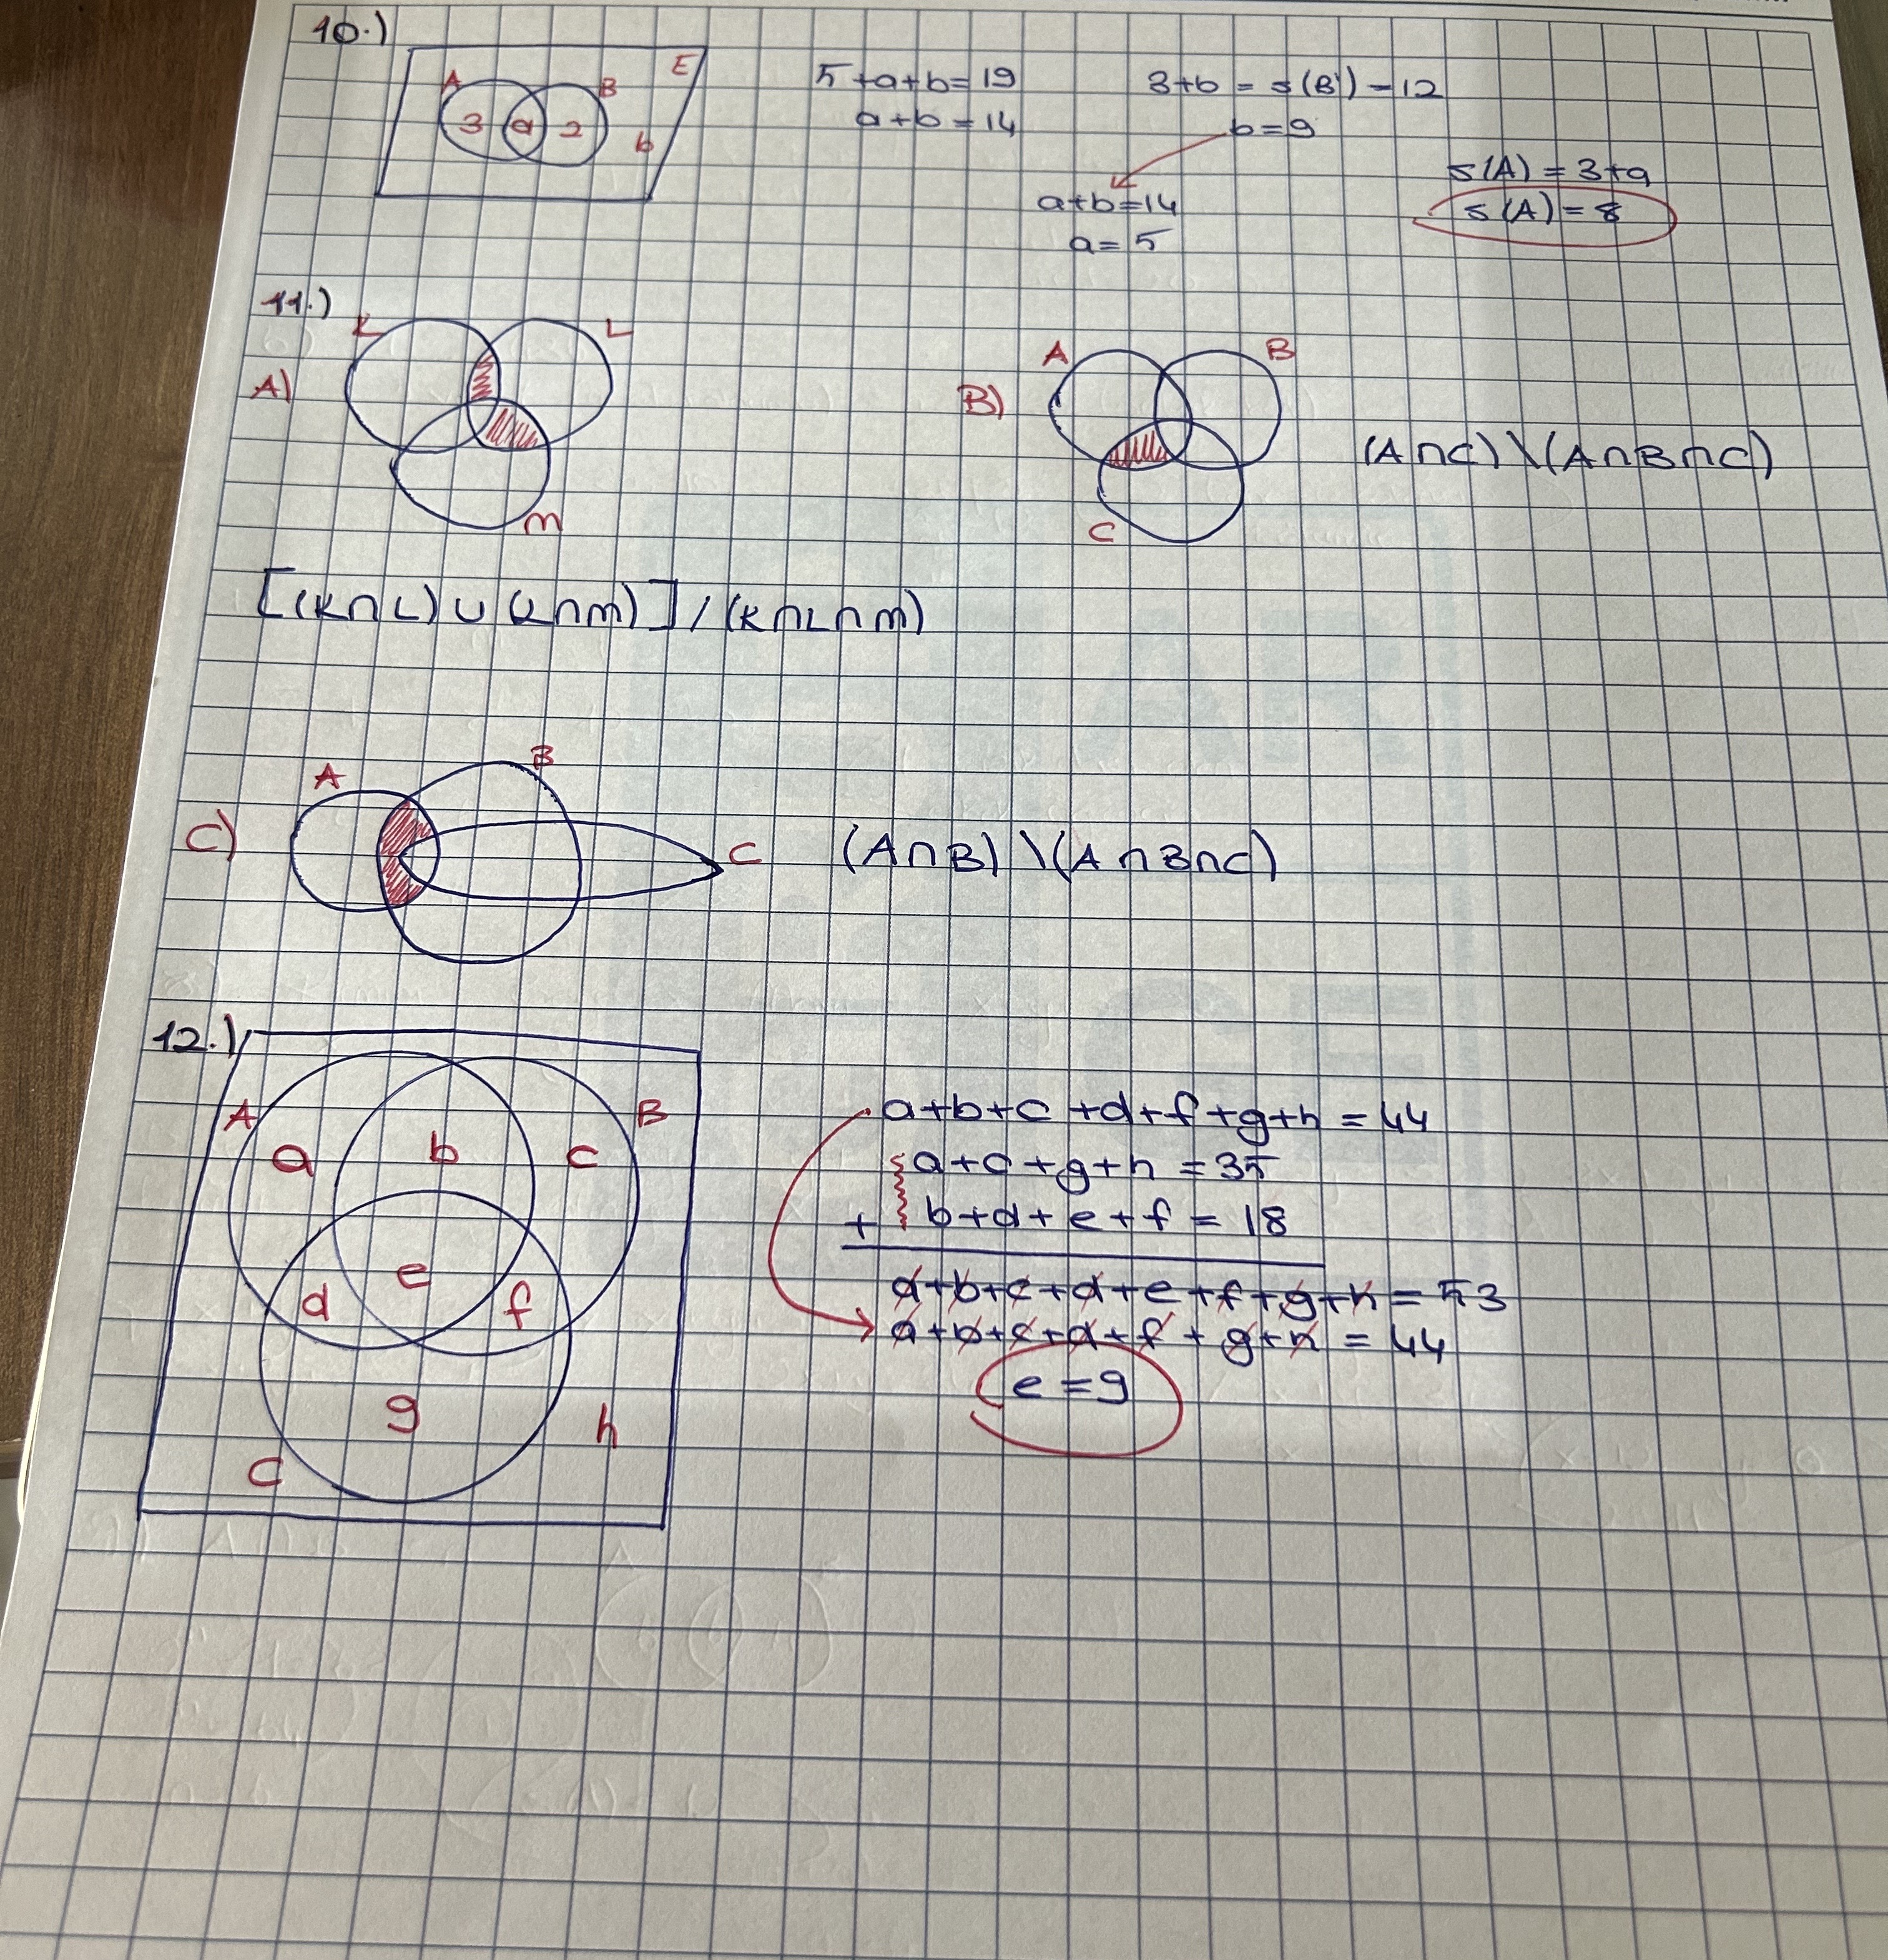 10.)
A B E
3 a 2 b
5+a+b=19
a+b=14
3+b = s(B') = 12
b=9
a+b=14
a=5
s(A) = 3+a
s(A)=8
11.)
A)
K L
M
B)
A B
C
(A∩C) \ (A∩B∩C)
[(K∩L) ∪ (L∩M)] / (K∩L∩M)
C)
A B
C
(A∩B) \ (A∩B∩C)
12.)
A B
a b c
d e f
g h
C
a+b+c+d+f+g+h = 44
a+c+g+h = 35
+ b+d+e+f = 18
a+b+c+d+e+f+g+h = 53
a+b+c+d+f+g+h = 44
e=9